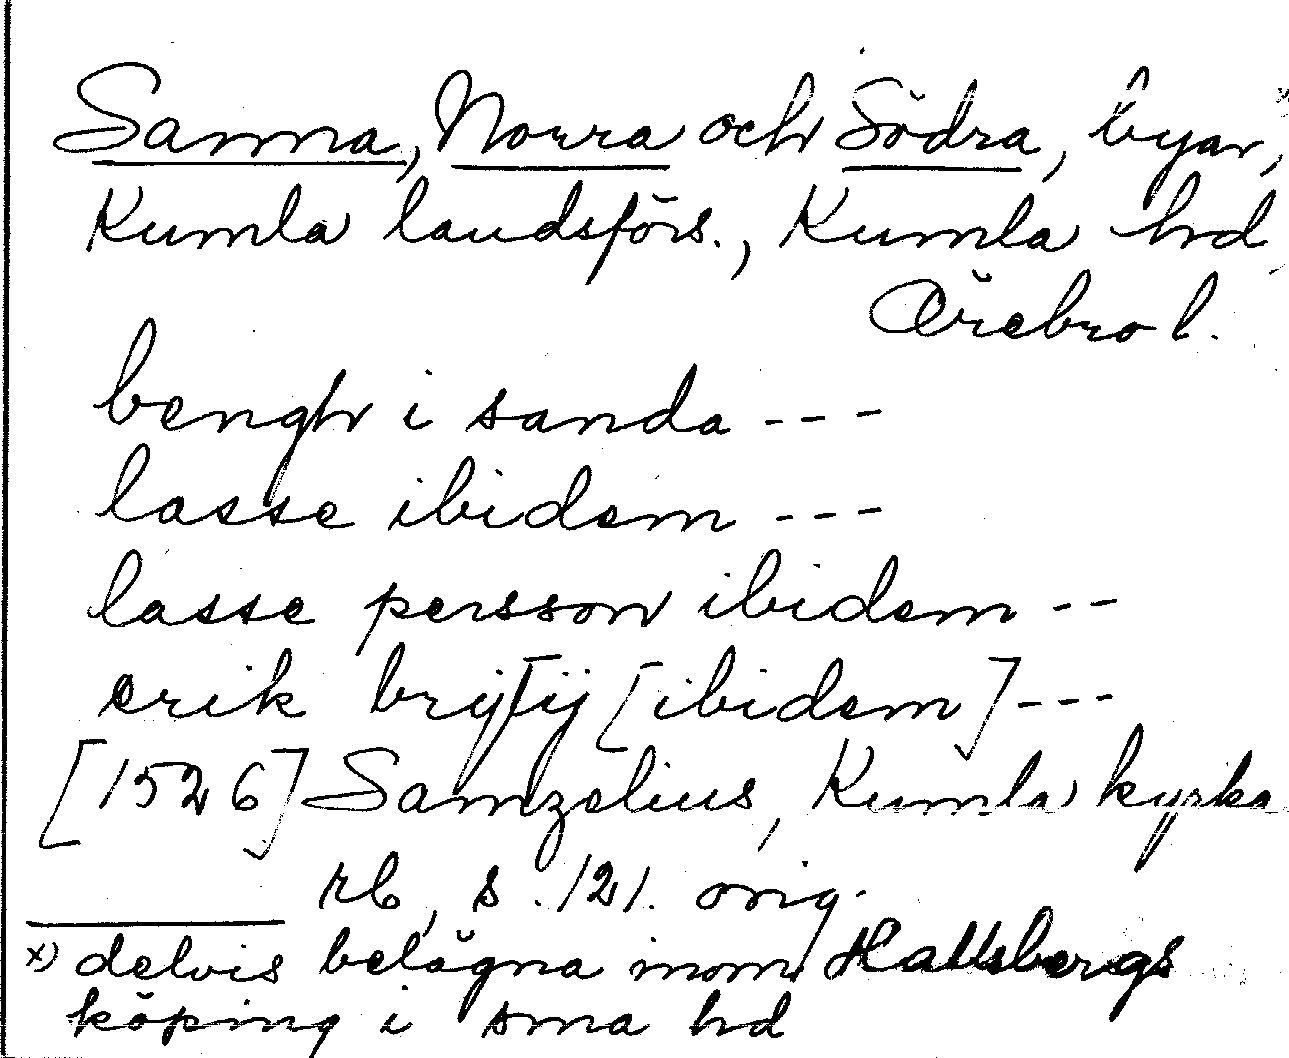 Sanna, Norra och Södra, byar,x
Kumla landsförs., Kumla hrd,
Örebro l.
bengh i sanda ---
lasse ibidem ---
lasse persson ibidem --
erik brijtij [ibidem] ---
[1526] Samzelius, Kumla kyrka
rb, s. 121. orig.
x) delvis belägna inom Hallsbergs
köping i sma hrd